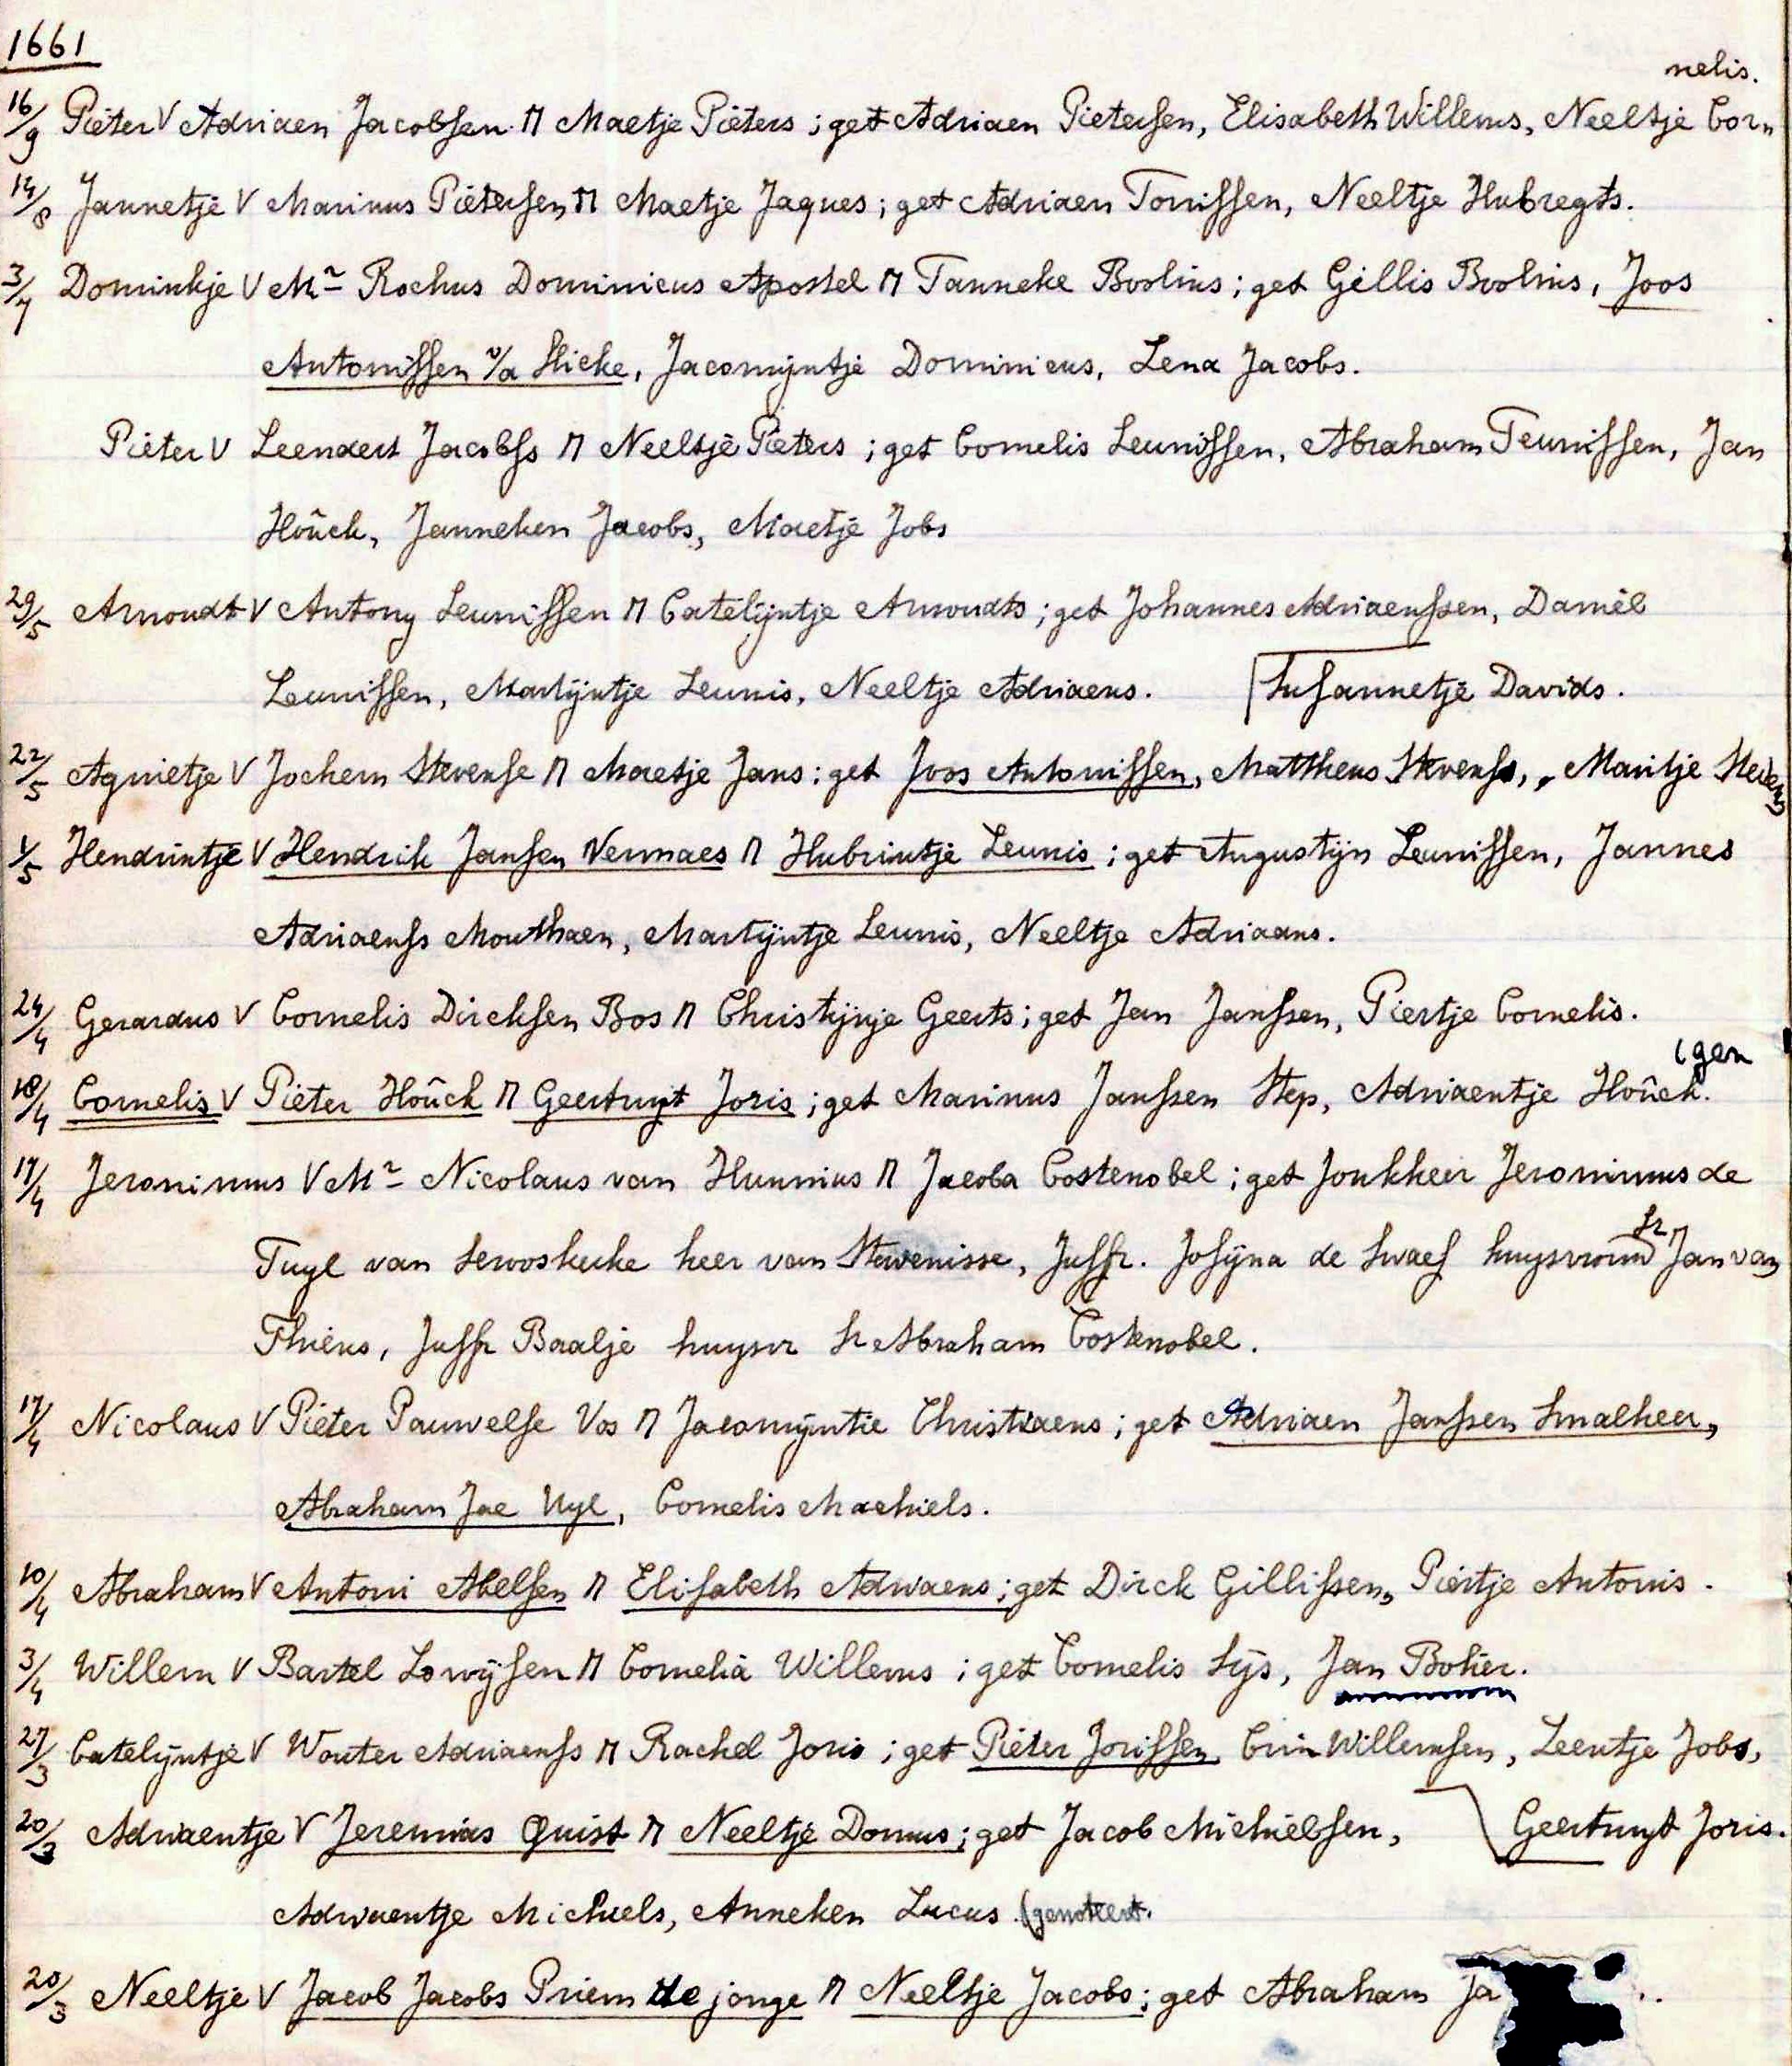 1661
nelis.
16/9 Pieter V Adriaen Jacobsen M Maetje Pieters ; get Adriaen Pietersen, Elisabeth Willems, Neeltje Cor„
14/8 Jannetje V Marinus Pietersen M Maetje Jaques ; get Adriaen Tonissen, Neeltje Hubregts.
3/7 Dominkje V Mr Rochus Dominicus Apostel M Tanneke Boolins ; get Gillis Boolins, Joos
Antonissen v/d Slicke, Jacomijntje Dominicus, Lena Jacobs.
Pieter V Leendert Jacobss M Neeltje Pieters ; get Cornelis Leunissen, Abraham Teunissen, Jan
Hoûck, Janneken Jacobs, Maetje Jobs
29/5 Arnoudt V Antony Leunissen M Catelijntje Arnoudts ; get Johannes Adriaenssen, Daniël
Leunissen, Martijntje Leunis, Neeltje Adriaens. Susannetje Davids.
22/5 Agnietje V Jochem Stevense M Maetje Jans : get Joos Antonissen, Mattheus Stevenss, „ Maritje Stevens
1/5 Hendrintje V Hendrik Jansen Vermaes M Hubrintje Leunis ; get Augustijn Leunissen, Jannes
Adriaenss Mouthaen, Martijntje Leunis, Neeltje Adriaans.
24/4 Gerardus V Cornelis Dircksen Bos M Christijnje Geerts ; get Jan Janssen, Piertje Cornelis.
(gen
18/4 Cornelis V Pieter Hoûck M Geertruyt Joris ; get Marinus Janssen Step, Adriaentje Hoûck.
17/4 Jeronimus V Mr Nicolaus van Hunnius M Jacoba Costenobel ; get Jonkheer Jeronimus de
Tuyl van Serooskerke heer van Stavenisse, Juffr. Josijna de Swaef huysvrouw Sr Jan van
Thiens, Juffr Baalje huysvr Sr Abraham Costenobel.
17/4 Nicolaus V Pieter Pauwelse Vos M Jacomijntie Christiaens ; get Adriaen Janssen Smalheer,
Abraham Jac Uyl, Cornelis Machiels.
10/4 Abraham V Antoni Abelsen M Elisabeth Adriaens ; get Dirck Gillissen, Piertje Antonis.
3/4 Willem V Bartel Lowijsen M Cornelia Willems ; get Cornelis Sijs, Jan Bohier.
27/3 Catelijntje V Wouter Adriaenss M Rachel Joris ; get Pieter Jorissen, Crin Willemsen, Leentje Jobs,
20/3 Adriaentje V Jeremias Quist M Neeltje Domus ; get Jacob Michielsen, Geertruyt Joris.
Adriaentje Michiels, Anneken Lucus (genoteert.
20/3 Neeltje V Jacob Jacobs Priem de jonge M Neeltje Jacobs ; get Abraham Ja